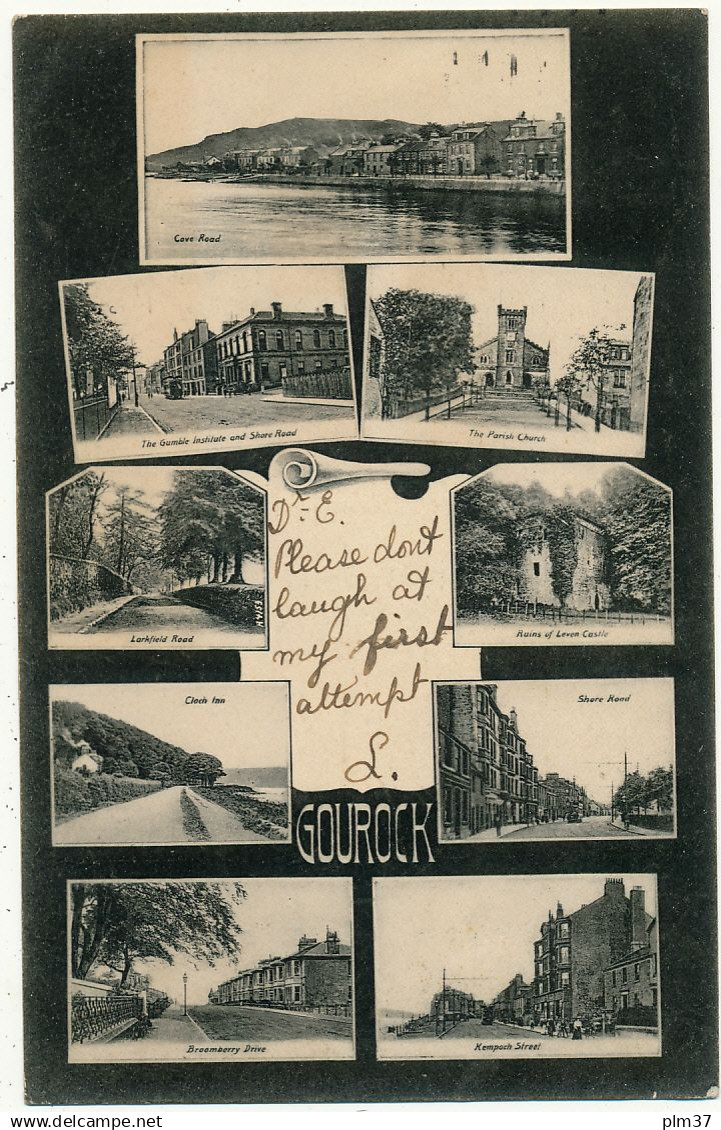 Cove Road
The Gamble Institute and Shore Road
The Parish Church
Larkfield Road
R4153
Ruins of Leven Castle
Dr E.
Please dont
laugh at
my first
attempt
L.
Cloch Inn
Shore Road
GOUROCK
Broomberry Drive
Kempoch Street
Delcampe.net
plm37